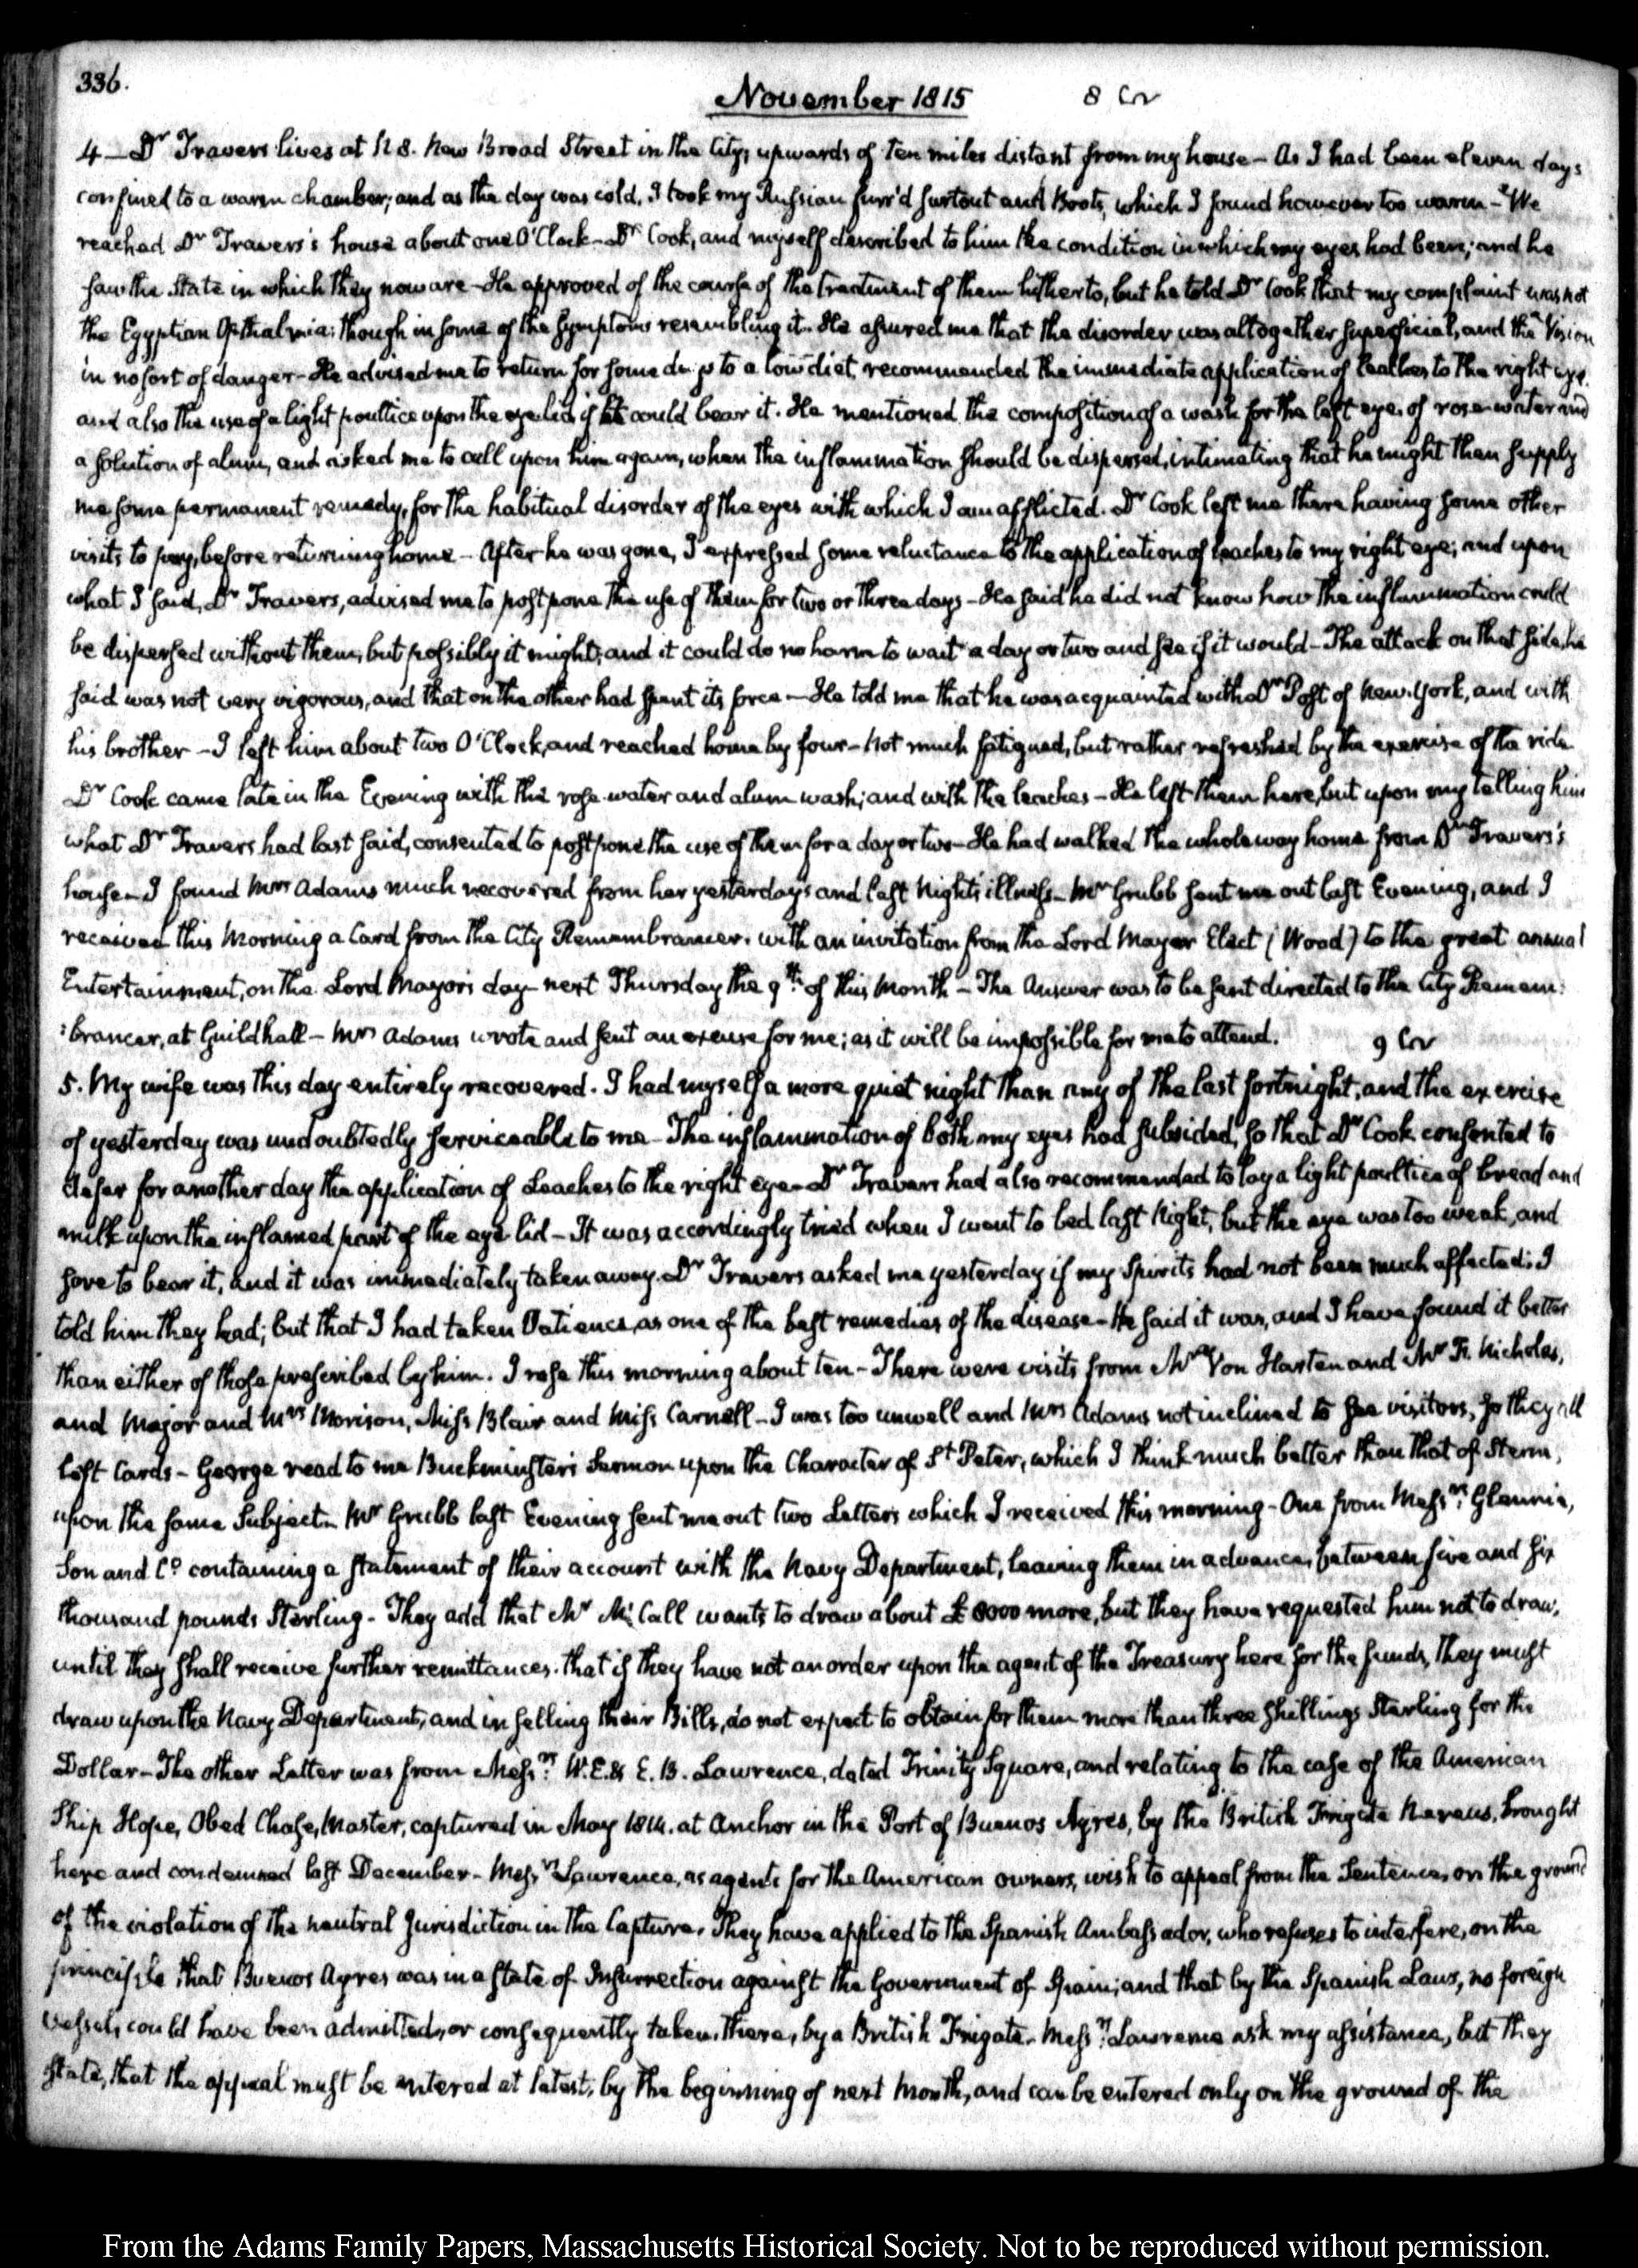 336.
November 1815
4 — Dr Travers lives at N 8. New Broad Street in the City, upwards of ten miles distant from my house — As I had been eleven days
confined to a warm chamber; and as the day was cold, I took my Russian furr'd surtout and Boots, which I found however too warm — We
reached Dr Travers's house about one O'Clock — Dr Cook, and myself described to him the condition in which my eyes had been; and he
saw the State in which they now are — He approved of the course of the treatment of them hitherto, but he told Dr Cook that my complaint was not
the Egyptian Opthalmia: though in some of the symptoms resembling it. He assured me that the disorder was altogether superficial, and the Vision
in no sort of danger — He advised me to return for some days to a low diet, recommended the immediate application of leaches to the right eye,
and also the use of a light poultice upon the eye lid if it could bear it. He mentioned the composition of a wash for the left eye, of rose-water and
a solution of alum, and asked me to call upon him again, when the inflammation should be dispersed, intimating that he might then supply
me some permanent remedy, for the habitual disorder of the eyes with which I am afflicted. Dr Cook left me there having some other
visits to pay, before returning home — After he was gone, I expressed some reluctance to the application of leaches to my right eye; and upon
what I said, Dr Travers, advised me to postpone the use of them for two or three days — He said he did not know how the inflammation could
be dispersed without them, but possibly it might; and it could do no harm to wait a day or two and see if it would — The attack on that side, he
said was not very vigorous, and that on the other had spent its force — He told me that he was acquainted with a Dr Post of New-York, and with
his brother — I left him about two O'Clock, and reached home by four — Not much fatigued, but rather refreshed by the exercise of the ride
Dr Cook came late in the Evening with the rose-water and alum wash; and with the leaches — He left them here, but upon my telling him
what Dr Travers had last said, consented to postpone the use of them for a day or two — He had walked the whole way home from Dr Travers's
house — I found Mrs Adams much recovered from her yesterday's and last Night's illness — Mr Grubb sent me out last Evening, and I
received this Morning a Card from the City Remembrancer, with an invitation from the Lord Mayor Elect (Wood) to the great annual
Entertainment, on the Lord Mayor's day — next Thursday the 9th of this Month — The Answer was to be sent directed to the City Remem:
:brancer, at Guildhall — Mrs Adams wrote and sent an excuse for me; as it will be impossible for me to attend.
5. My wife was this day entirely recovered. I had myself a more quiet night than any of the last fortnight, and the exercise
of yesterday was undoubtedly serviceable to me — The inflammation of both my eyes had subsided, so that Dr Cook consented to
defer for another day the application of Leaches to the right eye — Dr Travers had also recommended to lay a light poultice of bread and
milk upon the inflamed part of the eye lid — It was accordingly tried when I went to bed last Night, but the eye was too weak, and
sore to bear it, and it was immediately taken away. Dr Travers asked me yesterday if my Spirits had not been much affected: I
told him they had; but that I had taken Patience, as one of the best remedies of the disease — He said it was, and I have found it better
than either of those prescribed by him. I rose this morning about ten — There were visits from Mr Von Harten and Mr Fr. Nicholas,
and Major and Mrs Morison, Miss Blair and Miss Carnell — I was too unwell and Mrs Adams not inclined to see visitors, so they all
left Cards — George read to me Buckminster's Sermon upon the Character of St Peter, which I think much better than that of Sterne,
upon the same Subject — Mr Grubb last Evening sent me out two Letters which I received this morning — One from Messrs. Glennie,
Son and Co containing a statement of their account with the Navy Department, leaving them in advance, between five and six
thousand pounds Sterling — They add that Mr McCall wants to draw about £ 8000 more, but they have requested him not to draw,
until they shall receive further remittances. that if they have not an order upon the agent of the Treasury here for the funds, they must
draw upon the Navy Department, and in selling their Bills, do not expect to obtain for them more than three shillings Sterling for the
Dollar — The other Letter was from Messrs. W. E. & E. B. Lawrence, dated Trinity Square, and relating to the case of the American
Ship Hope, Obed Chase, Master, captured in May 1814. at Anchor in the Port of Buenos Ayres, by the British Frigate Nereus, brought
here and condemned last December — Messrs Lawrence, as agents for the American owners, wish to appeal from the Sentence, on the ground
of the violation of the neutral Jurisdiction in the Capture. They have applied to the Spanish Ambassador, who refuses to interfere, on the
principle that Buenos Ayres was in a state of Insurrection against the Government of Spain; and that by the Spanish Laws, no foreign
vessels could have been admitted, or consequently taken there, by a British Frigate — Messrs. Lawrence ask my assistance, but they
state, that the appeal must be entered at latest, by the beginning of next Month, and can be entered only on the ground of the
From the Adams Family Papers, Massachusetts Historical Society. Not to be reproduced without permission.